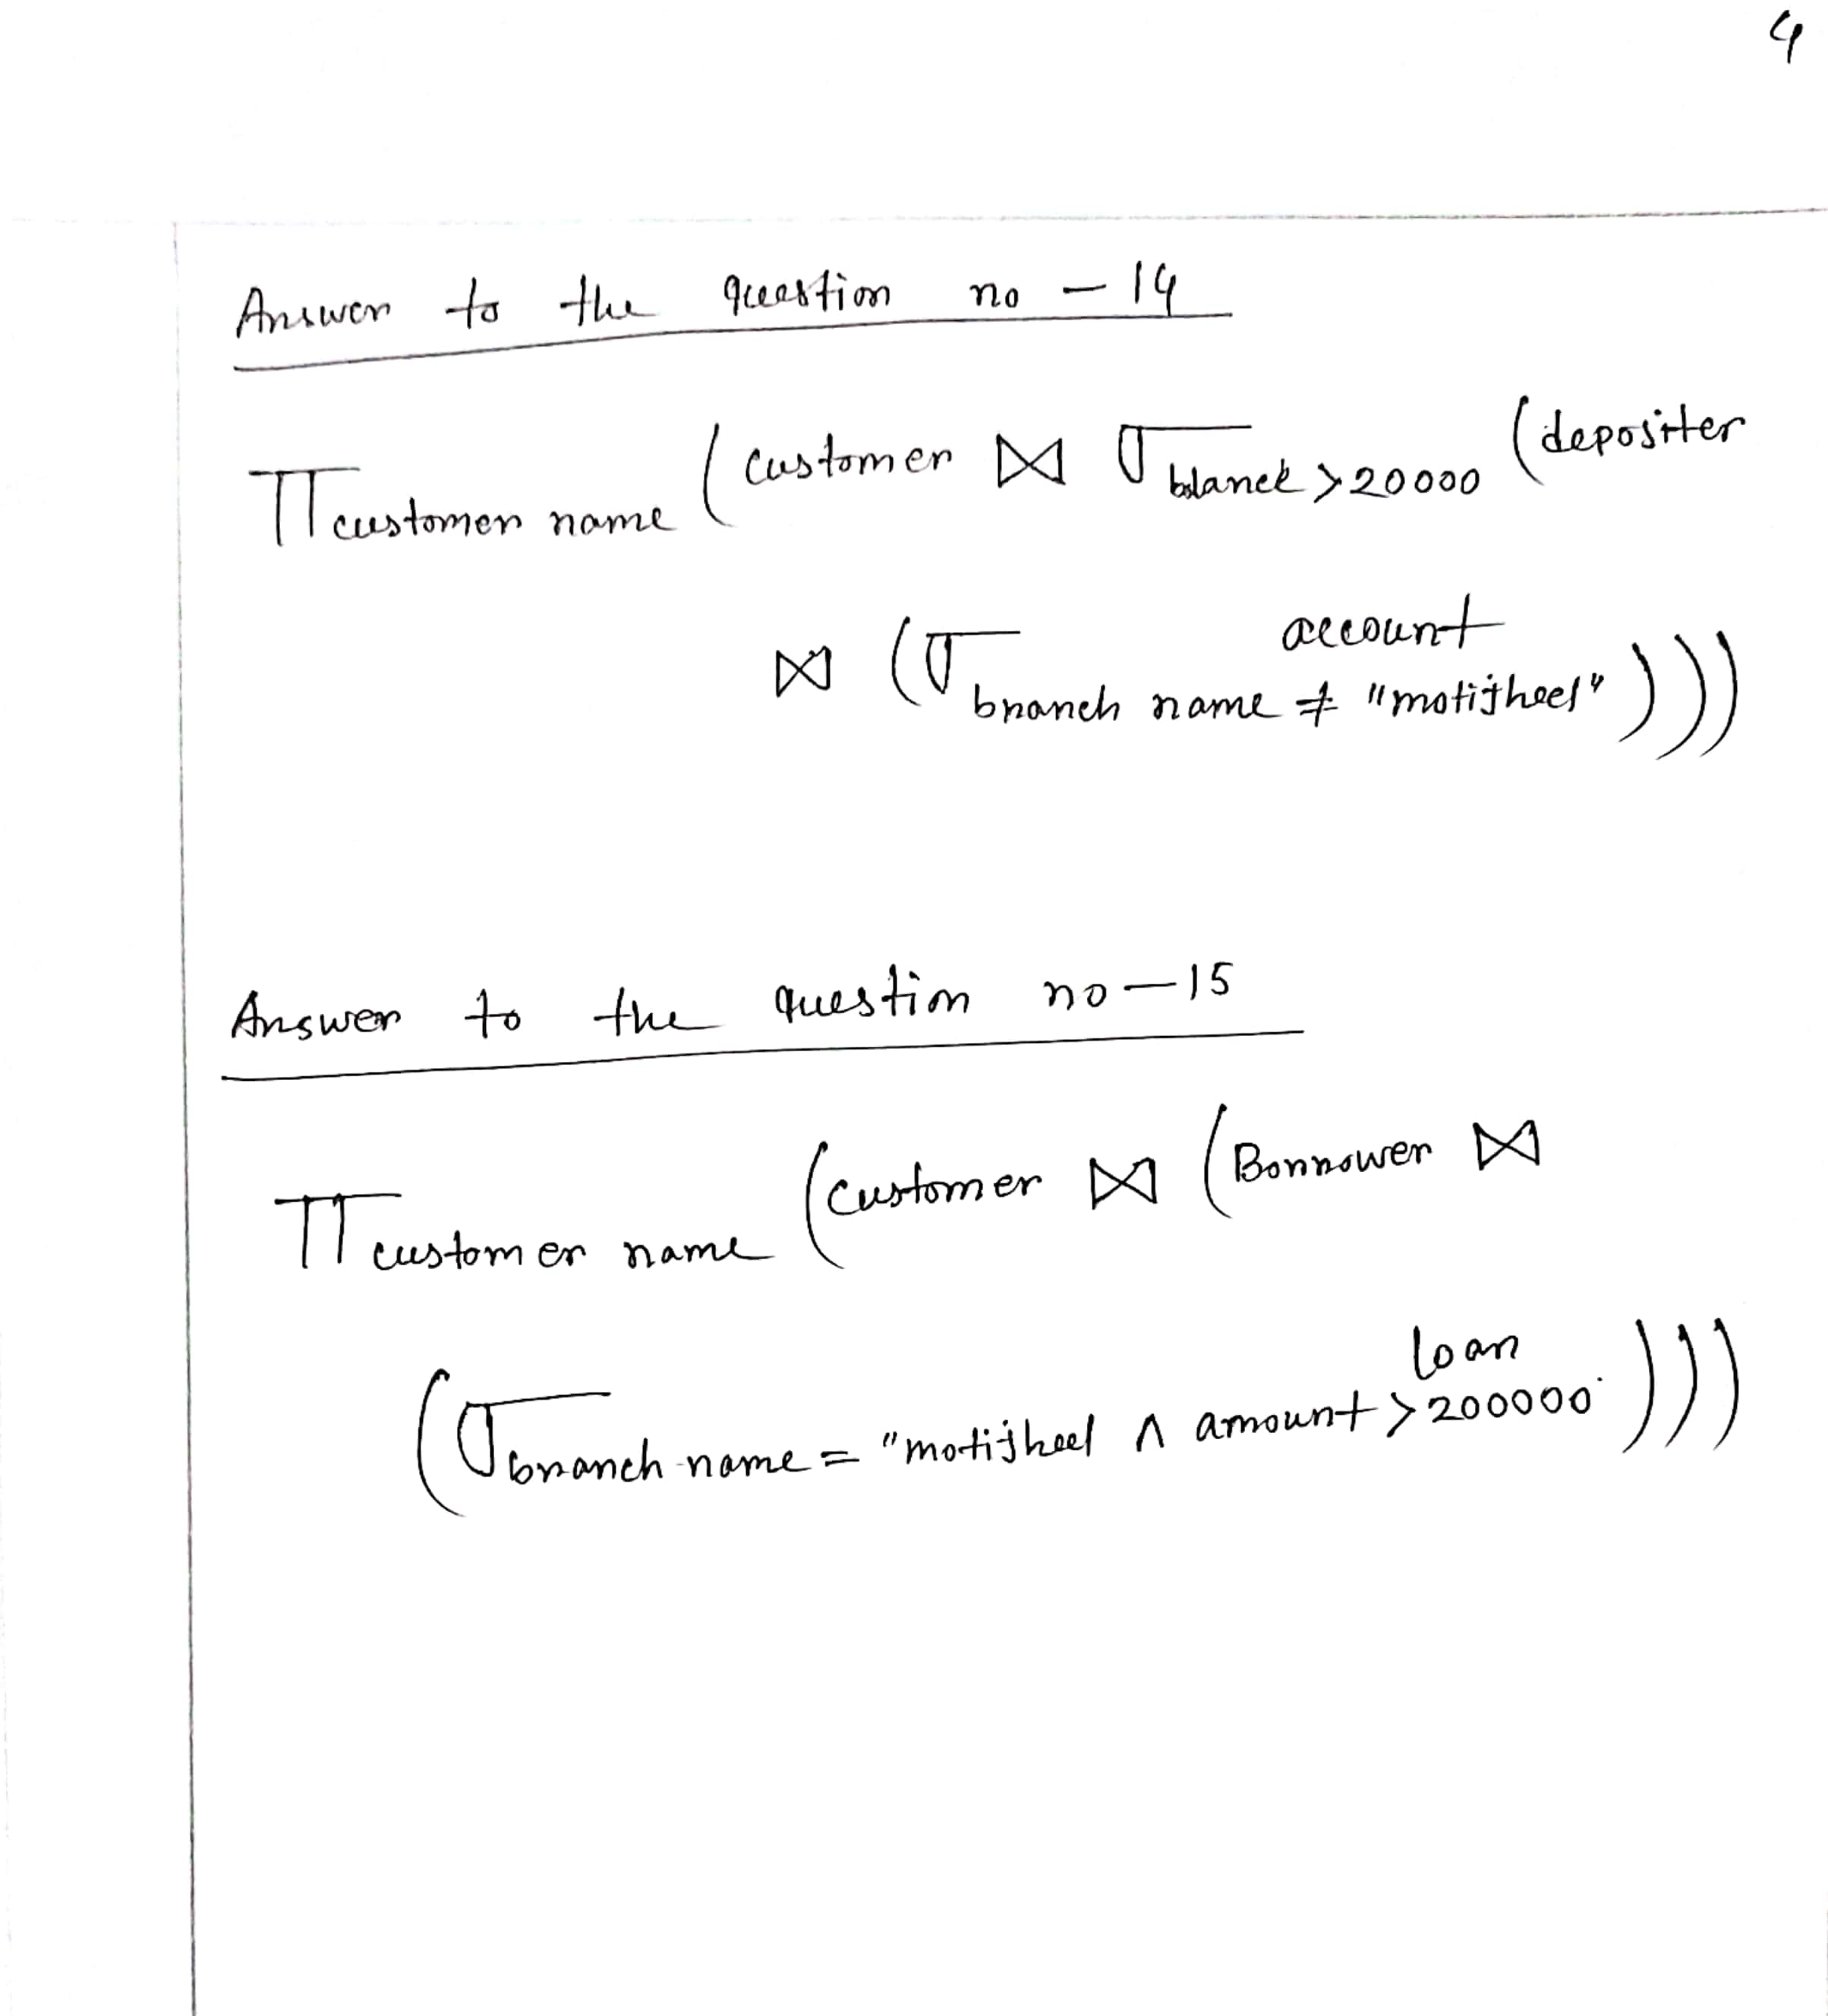 4
Answer to the question no - 14
π customer name (customer ⋈ σ balance > 20000 (depositer
⋈ (σ branch name ≠ "motijheel" account)))
Answer to the question no - 15
π customer name (customer ⋈ (Borrower ⋈
(σ branch-name = "motijheel ∧ amount > 200000 loan)))